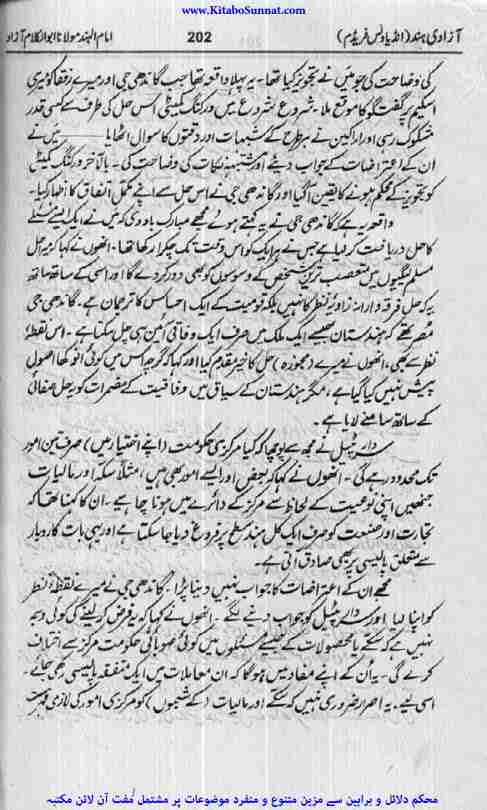 www.KitaboSunnat.com
آزادی ہند (انڈیا ونس فریڈم) 202 امام الہند مولانا ابوالکلام آزاد
کی وضاحت کی جو میں نے تجویز کیا تھا۔ یہ پہلا واقعہ تھا جب گاندھی جی اور میرے رفقا کو میری
اسکیم پر گفتگو کا موقع ملا۔ شروع شروع میں ورکنگ کمیٹی اس حل کی طرف سے کسی قدر
مشکوک رہی اور اراکین نے ہر طرح کے شبہات اور دقتوں کا سوال اٹھایا۔ میں نے
ان کے اعتراضات کے جواب دیئے اور مشتبہ نکات کی وضاحت کی۔ بالآخر ورکنگ کمیٹی
کو تجویز کے محکم ہونے کا یقین آگیا اور گاندھی جی نے اس حل سے اپنے مکمل اتفاق کا اظہار کیا۔
واقعہ یہ ہے کہ گاندھی جی نے یہ کہتے ہوئے مجھے مبارک باد دی کہ میں نے ایک ایسے مسئلے
کا حل دریافت کر لیا ہے جس نے ہر ایک کو اس وقت تک چکرا رکھا تھا۔ انھوں نے کہا کہ میرا حل
مسلم لیگیوں میں متعصب ترین شخص کے وسوسوں کو بھی دور کر دے گا اور اسی کے ساتھ ساتھ
یہ کہ حل فرقہ دارانہ زاویۂ نظر کا نہیں بلکہ قومیت کے ایک احساس کا ترجمان ہے۔ گاندھی جی
مُصر تھے کہ ہندستان جیسے ایک ملک میں صرف ایک وفاقی آئین ہی چل سکتا ہے۔ اس نقطۂ
نظر سے بھی، انھوں نے میرے (مجوزہ) حل کا خیر مقدم کیا اور کہا کہ گرچہ اس میں کوئی انوکھا اصول
پیش نہیں کیا گیا ہے، مگر ہندستان کے سیاق میں وفاقیت کے مضمرات کو یہ حل صفائی
کے ساتھ سامنے لایا ہے۔
سردار پٹیل نے مجھ سے پوچھا کہ کیا مرکزی حکومت (اپنے اختیار میں) صرف تین امور
تک محدود رہے گی۔ انھوں نے کہا کہ بعض اور ایسے امور بھی ہیں، مثلاً سکہ اور مالیات
جنھیں اپنی نوعیت کے لحاظ سے مرکز کے دائرے میں ہونا چاہیے۔ ان کا کہنا تھا کہ
تجارت اور صنعت کو صرف ایک کل ہند سطح پر فروغ دیا جا سکتا ہے اور یہی بات کاروبار
سے متعلق پالیسی پر بھی صادق آتی ہے۔
مجھے ان کے اعتراضات کا جواب نہیں دینا پڑا۔ گاندھی جی نے میرے نقطۂ نظر
کو اپنا لیا اور سردار پٹیل کو جواب دینے لگے۔ انھوں نے کہا کہ یہ فرض کر لینے کی کوئی وجہ
نہیں ہے کہ سکے یا محصولات کے جیسے مسئلوں میں کوئی صوبائی حکومت مرکز سے اختلاف
کرے گی۔ یہ اُن کے اپنے مفاد میں ہوگا کہ ان معاملات میں ایک متفقہ پالیسی رکھی جائے۔
اسی لیے۔ یہ اصرار ضروری نہیں کہ سکے اور مالیات (کے شعبوں) کو مرکزی امور کی لازمی فہرست
محکم دلائل و براہین سے مزین متنوع و منفرد موضوعات پر مشتمل مفت آن لائن مکتبہ